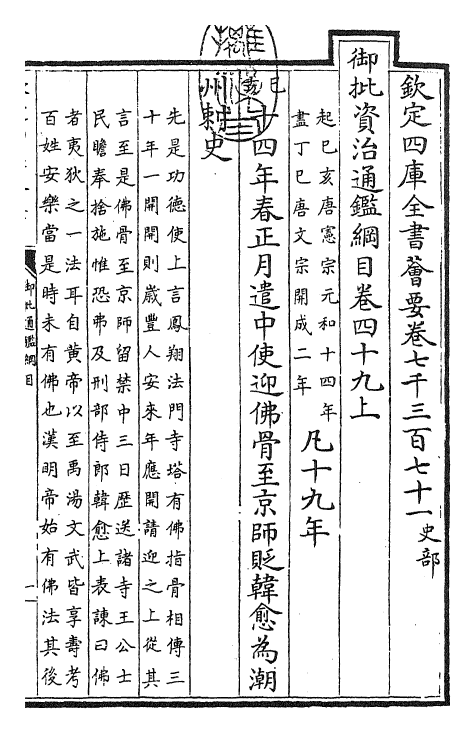 欽定四庫全書薈要卷七千三百七十一史部
御批資治通鑑綱目卷四十九上
起己亥唐憲宗元和十四年
盡丁巳唐文宗開成二年
凡十九年
十四年春正月遣中使迎佛骨至京師貶韓愈為潮
州刺史
先是功德使上言鳳翔法門寺塔有佛指骨相傳三
十年一開開則歲豐人安來年應開請迎之上從其
言至是佛骨至京師留禁中三日歷送諸寺王公士
民瞻奉捨施惟恐弗及刑部侍郎韓愈上表諫曰佛
者夷狄之一法耳自黃帝以至禹湯文武皆享壽考
百姓安樂當是時未有佛也漢明帝始有佛法其後
御批通鑑綱目
一